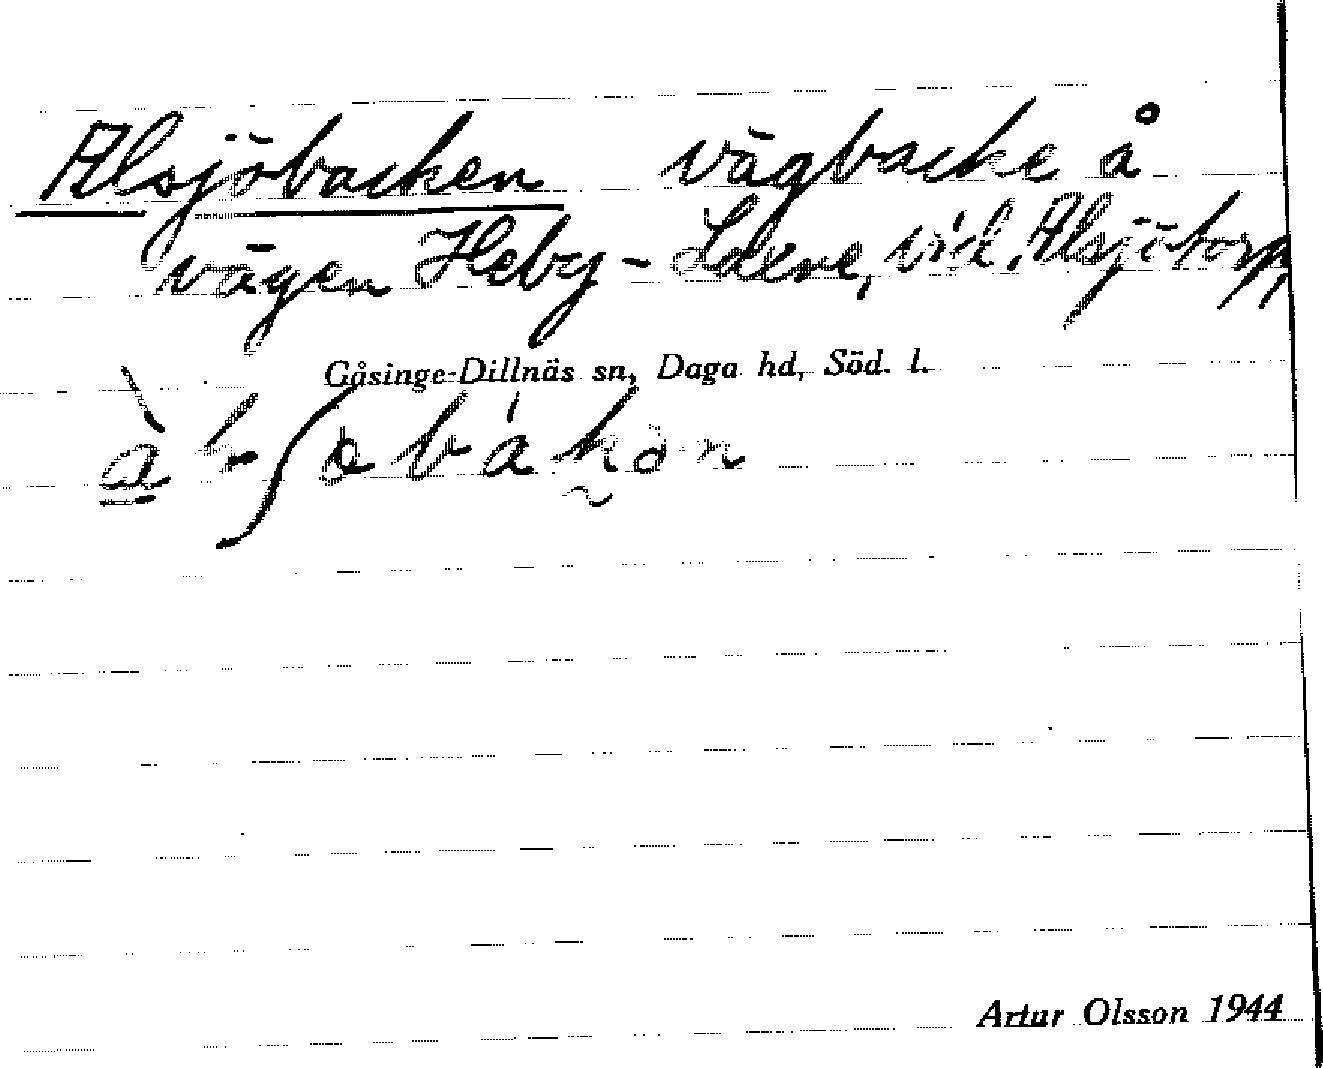 Alsjöbacken vägbacke å
vägen Heby - Laxne, vid Alsjötorp
Gåsinge-Dillnäs sn, Daga hd, Söd. l.
Artur Olsson 1944